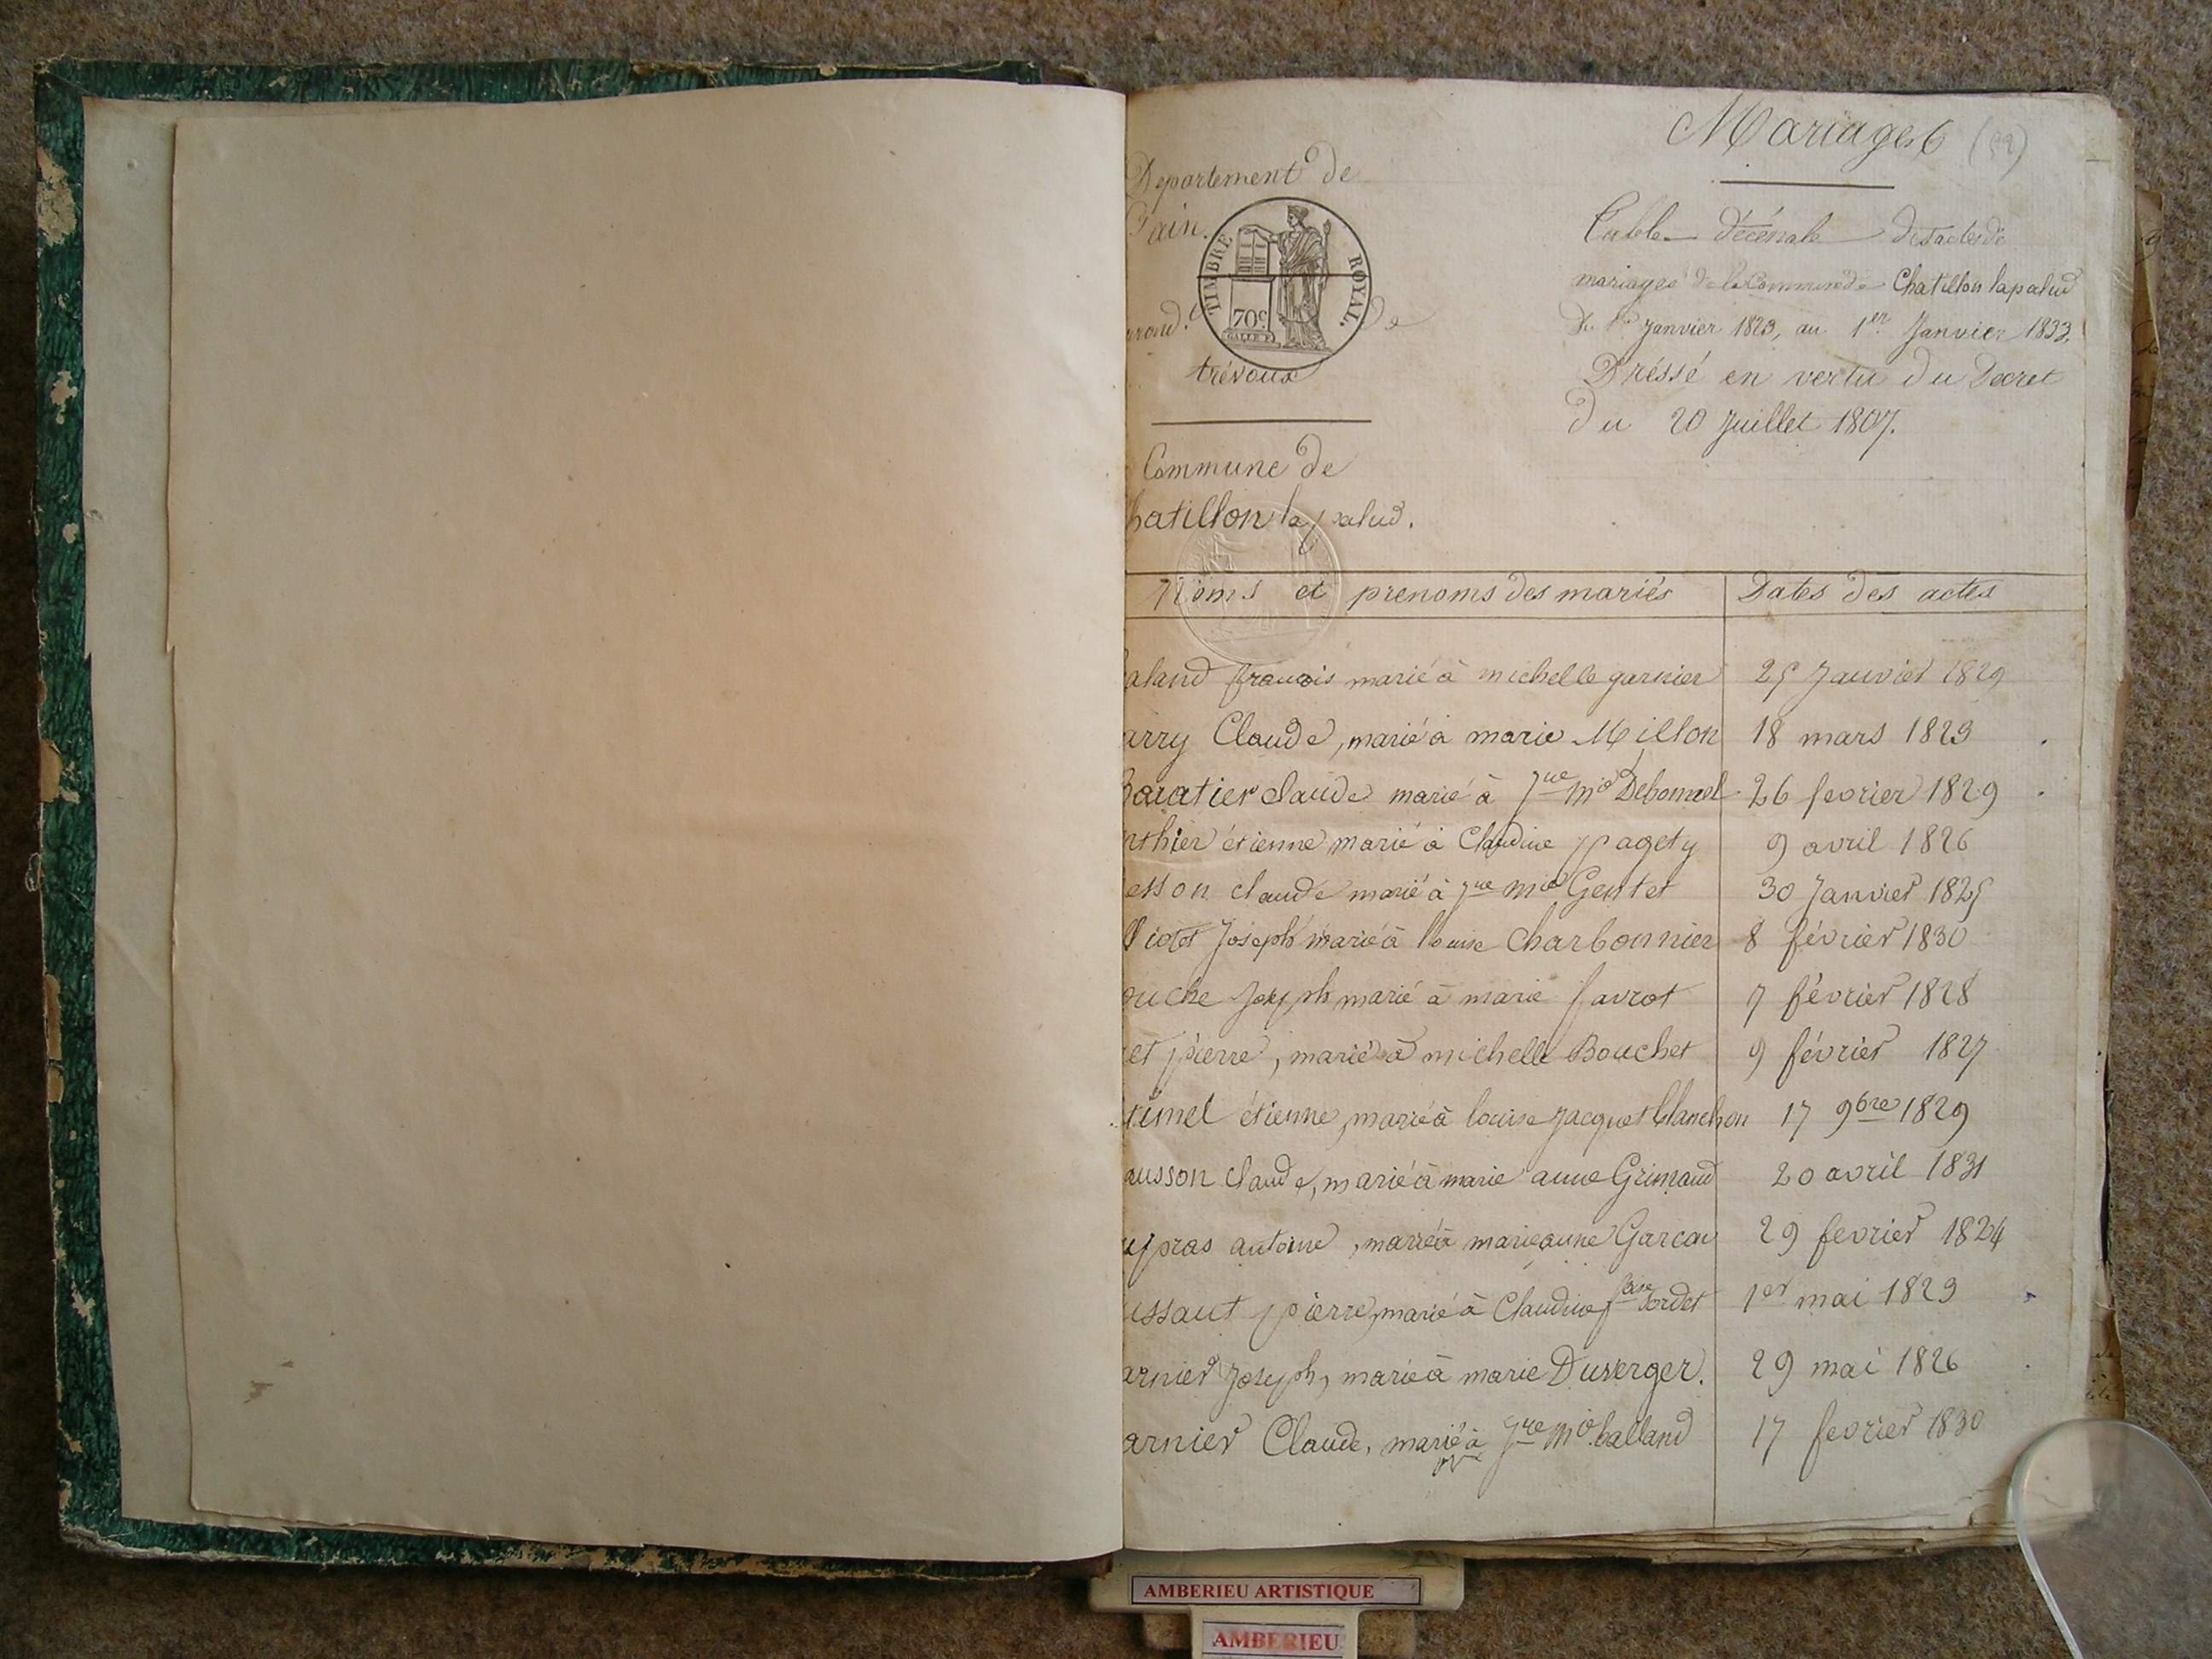 Mariages
Departement de
l'ain.
TIMBRE ROYAL.
70c
de
trévoux
Table décénale des actes de
mariages de la Commune de Chatillon lapalud
Du 1er Janvier 1823, au 1er Janvier 1833.
Dréssé en vertu du Decret
du 20 Juillet 1807.
Commune de
hatillon la palud.
Noms et prenoms des mariés Dates des actes
aland francois marié à michelle garnier 25 Janvier 1829
arry Claude, marié à marie Millon 18 mars 1823
Baratier claude marié à Jne Mie 26 fevrier 1829
rthier étienne marié à Claudine pagety 9 avril 1826
esson claude marié à Jne mie Gentet 30 Janvier 1825
Joseph marié à louise Charbonnier 8 février 1830
ouche Joseph marié à marie favrot 7 février 1828
et pierre, marié à michelle Bouchet 9 février 1827
étienne, marié à louise Jacquet blanchon 17 9bre 1829
ausson claude, marié à marie anne Grimaud 20 avril 1831
upras antoine, marié à marie anne 29 fevrier 1824
ussaut pierre, marié à Claudine fse 1er mai 1823
arnier Joseph, marié à marie Duverger. 29 mai 1826
arnier Claude, marié à Jne Mie balland 17 fevrier 1830
AMBERIEU ARTISTIQUE
AMBERIEU